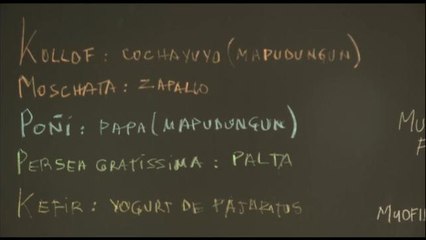 KOLLOF: COCHAYUYO (MAPUDUNGUN)
MOSCHATA: ZAPALLO
POÑI: PAPA (MAPUDUNGUN)
PERSEA GRATISSIMA: PALTA
KEFIR: YOGURT DE PAJARITOS